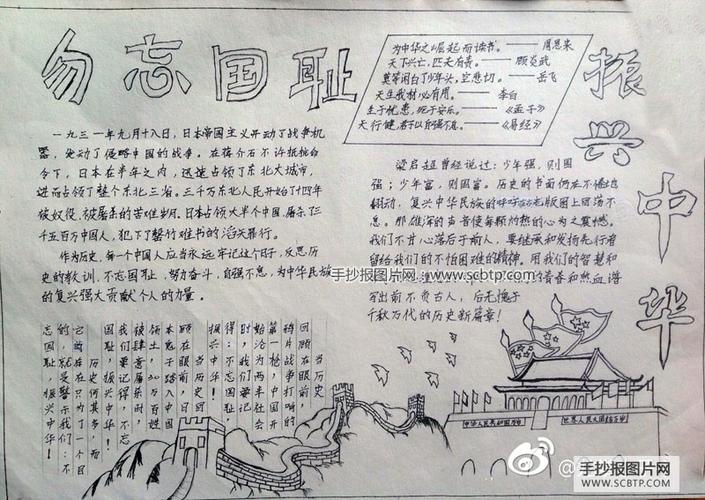 勿忘国耻
为中华之崛起而读书。——周恩来
天下兴亡，匹夫有责。——顾炎武
莫等闲白了少年头，空悲切。——岳飞
天生我材必有用。——李白
生于忧患，死于安乐。——《孟子》
天行健，君子以自强不息。——《易经》
振兴中华
一九三一年九月十八日，日本帝国主义开动了战争机
器，发动了侵略中国的战争。在蒋介石不许抵抗命
令下，日本在半年之内，迅速占领了东北大城市，
进而占领了整个东北三省。三千万东北人民开始了十四年
被奴役，被屠杀的苦难岁月。日本占领大半个中国，屠杀了三
千五百万中国人，犯下了罄竹难书的滔天罪行。
作为历史，每一个中国人应当永远牢记这个日子，反思历
史的教训，不忘国耻，努力奋斗，自强不息，为中华民族
的复兴强大贡献个人的力量。
梁启超曾经说过：少年强，则国
强；少年富，则国富。历史的书面仍在不倦地
翻动，复兴中华民族的呼呼
版图上回荡不
息。那雄浑的声音使每颗灼热的心为之震憾。
我们不甘心落后于前人，要继承和发扬先行者
留给我们的不怕困难的精神。用我们的智慧和
青春和热血谱
写出前不负古人，后无愧于
千秋万代的历史新篇章！
当历史
回顾在眼前，
转战争打响的
第一枪，我们中
始沦为半
时，
得：不忘国耻，
振兴中华！
当历史
顾于眼前，
本踏入中国
领土，30万百姓
被肆意屠杀时，
我们记得，不忘
国耻，振兴中华！
历史只是
它，是在
的
忘国耻，振兴中华！
中华人民共和国万岁
世界人民大团结万岁
手抄报图片网 www.scbtp.com
手抄报图片网
SCBTP.COM